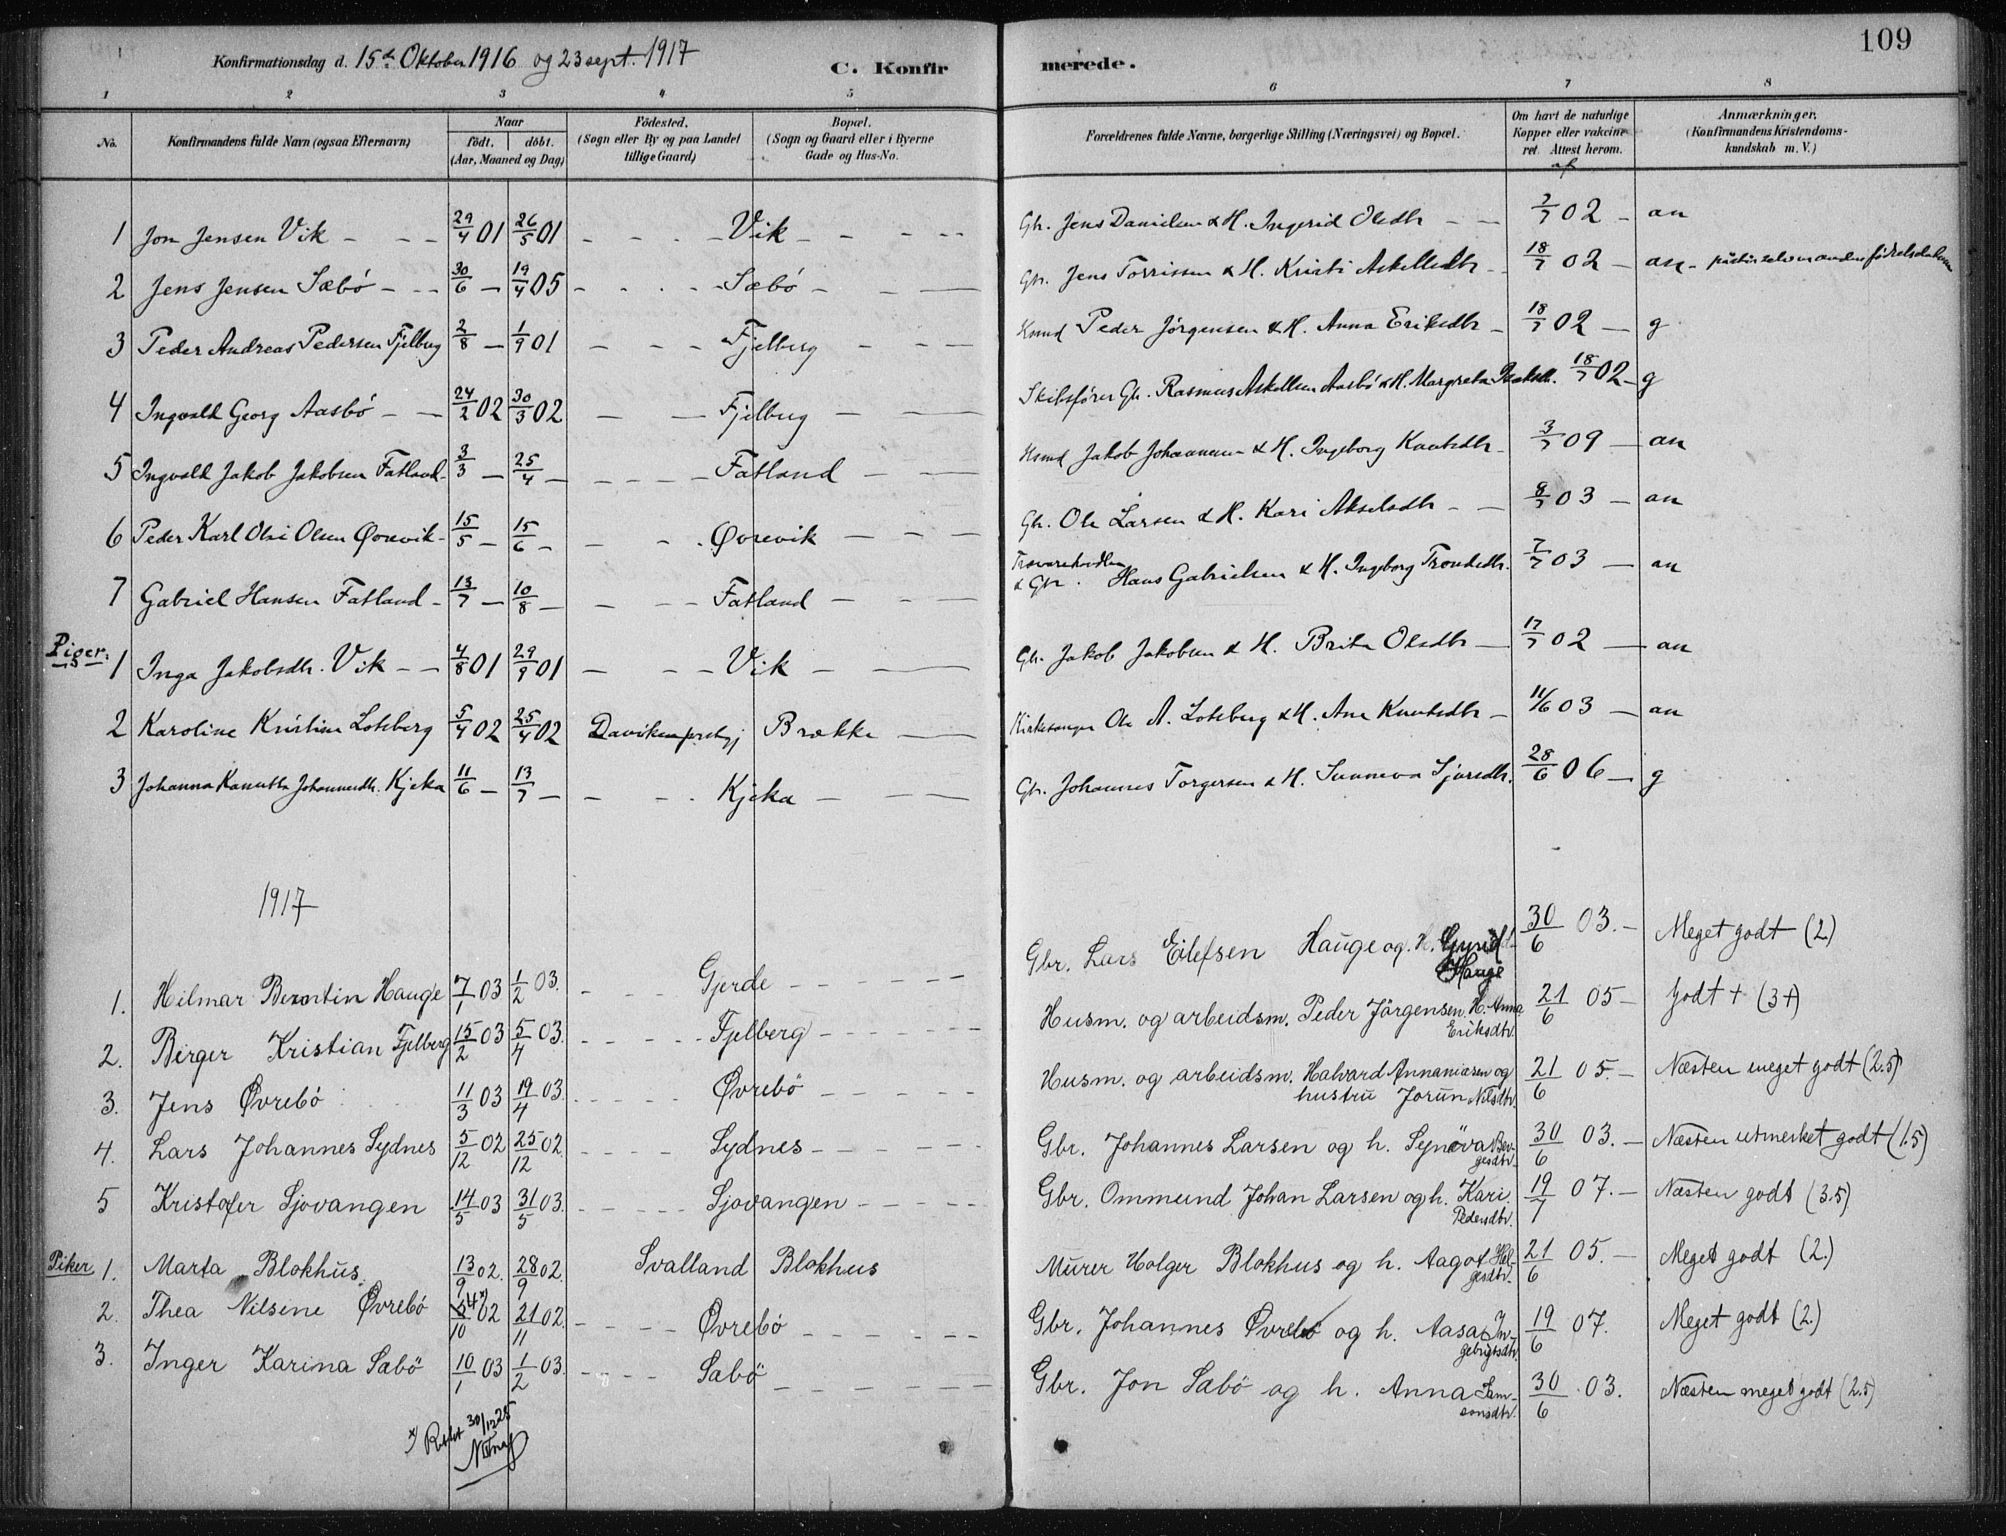 109
Konfirmationsdag d. 15de Oktober 1916 og 23 sept. 1917
C. Konfirmerede.
1 2 3 4 5 6 7 8
No. Konfirmandens fulde Navn (ogsaa Efternavn) Naar født. døbt. (Aar, Maaned og Dag) Fødested. (Sogn eller By og paa Landet tillige Gaard) Bopæl. (Sogn og Gaard eller i Byerne Gade og Hus-No. Forældrenes fulde Navne, borgerlige Stilling (Næringsvei) og Bopæl. Om havt de naturlige Kopper eller vakcineret. Attest herom. Anmærkninger. (Konfirmandens Kristendomskundskab m. V.)
af
1 Jon Jensen Vik - - - 29/4 01 26/5 01 - - - - Vik - - - - Gbr. Jens Danielsen & H. Ingerid Olsdtr - - 2/7 02 - an
2 Jens Jensen Sæbø - - - 30/6 - 19/4 05 - - - - Sæbø - - - Gbr. Jens Torrissen & H. Kristi Askelledtr - - 18/7 02 - an -
3 Peder Andreas Pedersen Fjelberg 2/8 - 1/9 01 - - - Fjelberg - - - Husmd Peder Jørgensen & H. Anna Eriksdtr - 18/7 02 - g
4 Ingvald Georg Aasbø - - 24/2 02 30/3 02 - - Fjelberg - - Skibsfører Gbr. Rasmus Askellsen Aasbø & H. Margreta 18/7 02 - g
5 Ingvald Jakob Jakobsen Fatland - 3/3 - 25/4 - - - - - Fatland - - Husmd Jakob Johannesen & H. Ingeborg Knutsdtr - 3/7 09 - an
6 Peder Karl Olai Olsen Øvrevik - 15/5 - 15/6 - - - . Øvrevik - - - Gbr. Ole Larsen & H. Kari Akselsdtr - - 8/7 03 - an
7 Gabriel Hansen Fatland - 13/7 - 10/8 - - - - Fatland - - - Trævarehandler & Gbr. Hans Gabrielsen & H. Ingeborg Trondsdtr. 7/7 03 - an
Piger.
1 Inga Jakobsdtr. Vik - - 4/8 01 29/9 01 - - - Vik - - Gbr. Jakob Jakobsen & H. Brita Olsdtr - 17/7 02 - an
2 Karoline Kristine Loteberg 5/4 02 25/4 02 Daviken prstgj Brække - Kirkesanger Ole A. Loteberg & H. Ane Knutsdtr - 11/6 03 - an
3 Johanna Kanutta Johannesdtr. Kjeka 11/6 - 13/7 - - - . Kjeka - - - Gbr. Johannes Torgersen & H. Sunneva Sjursdtr. 28/6 06 - g
1917
1. Hilmar Berntin Hauge 7/1 03 1/2 03. - - - - Gjerde - - - - - Gbr. Lars Eilefsen Hauge og H. Gyrid Hauge 30/6 03. - Meget godt (2)
2. Birger Kristian Fjelberg 15/2 03 5/4 03. - - - - - Fjelberg - - - - - Husm. og arbeidsm. Peder Jörgensen. H. Anna Eriksdtr. 21/6 05 - Godt + (3+)
3. Jens Øvrebö 11/3 03 19/4 03. - - - - - Øvrebö - - - - - Husm. og arbeidsm. Halvard Annaniasen og hustru Jorun Nilsdtr. 21/6 05. - Næsten meget godt (2.5)
4. Lars Johannes Sydnes 5/12 02 25/12 02 - - - - Sydnes - - - - - Gbr. Johannes Larsen og h. Synöva Børgesdtr. 30/6 03. - Næsten utmerket godt (1.5)
5 Kristofer Sjovangen 14/5 03 31/5 03. - - - - - Sjovangen - - - - Gbr. Ommund Johan Larsen og h. Kari Pedersdtr. 19/7 07. - Næsten godt (3.5)
Piker 1. Marta Blokhus. 13/9 02. 28/9 02. Svalland Blokhus Murer Holger Blokhus og h. Aagot Helgesdtr. 21/6 05. - Meget godt (2.)
2. Thea Nilsine Øvrebö 4x)/10 02 21/11 02. - - - - Øvrebö - - - - - Gbr. Johannes Øvrebö og h. Aasa Ingebrigtsdtr. 19/6 07. Meget godt (2.)
3. Inger Karina Sæbö 10/1 03 1/2 03. - - - - Sæbö - - - - - Gbr. Jon Sæbö og h. Anna Samsonsdtr. 30/6 03. Næsten meget godt (2.5)
x) Rettet 30/12 25